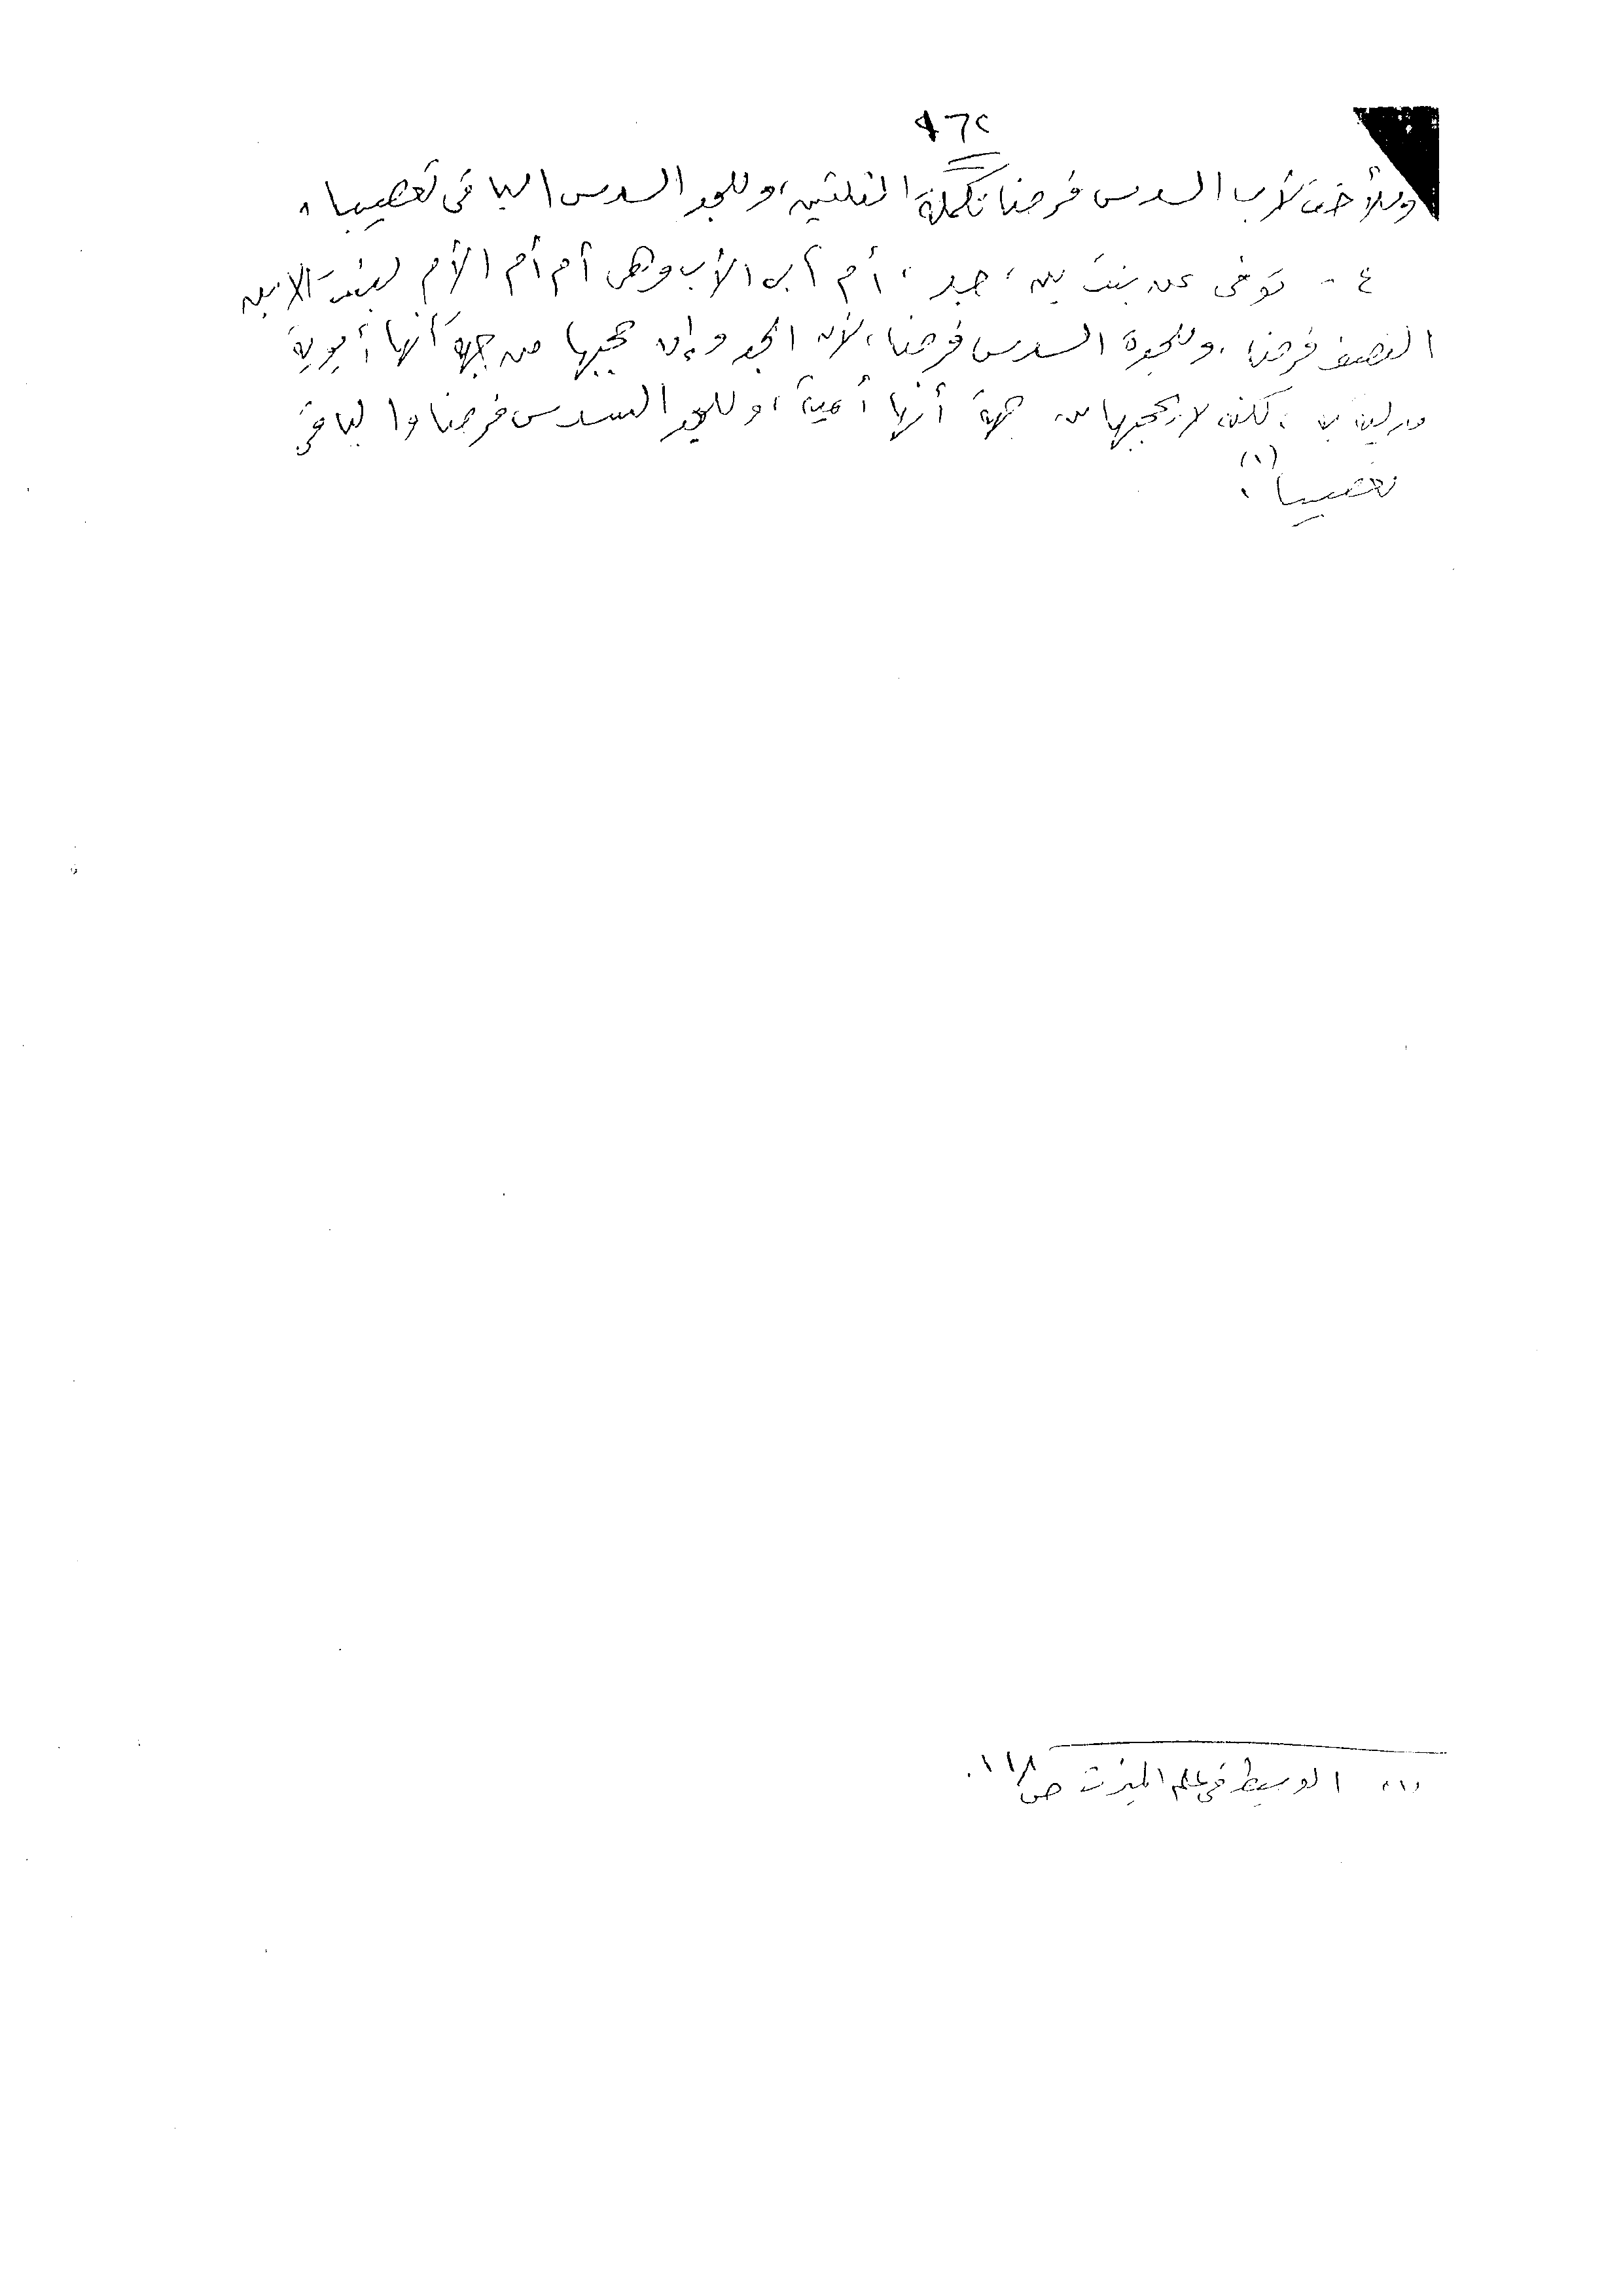 ٩٦٢
وللأخت لأب السدس فرضا تكملة الثلثين، وللجد السدس الباقى تعصيبا.
٤ - توفى عن بنت ابن، جد، أم أبى الأب وهى أم أم الأم لبنت الابن
النصف فرضا، وللجدة السدس فرضا، لأن الجد وإن حجبها من جهة أنها أبوية
لكن لا يحجبها من جهة أنها أمية، وللجد السدس فرضا والباقى
تعصيبا (١).
(١) الوسيط فى علم الميراث ص ١١٨.